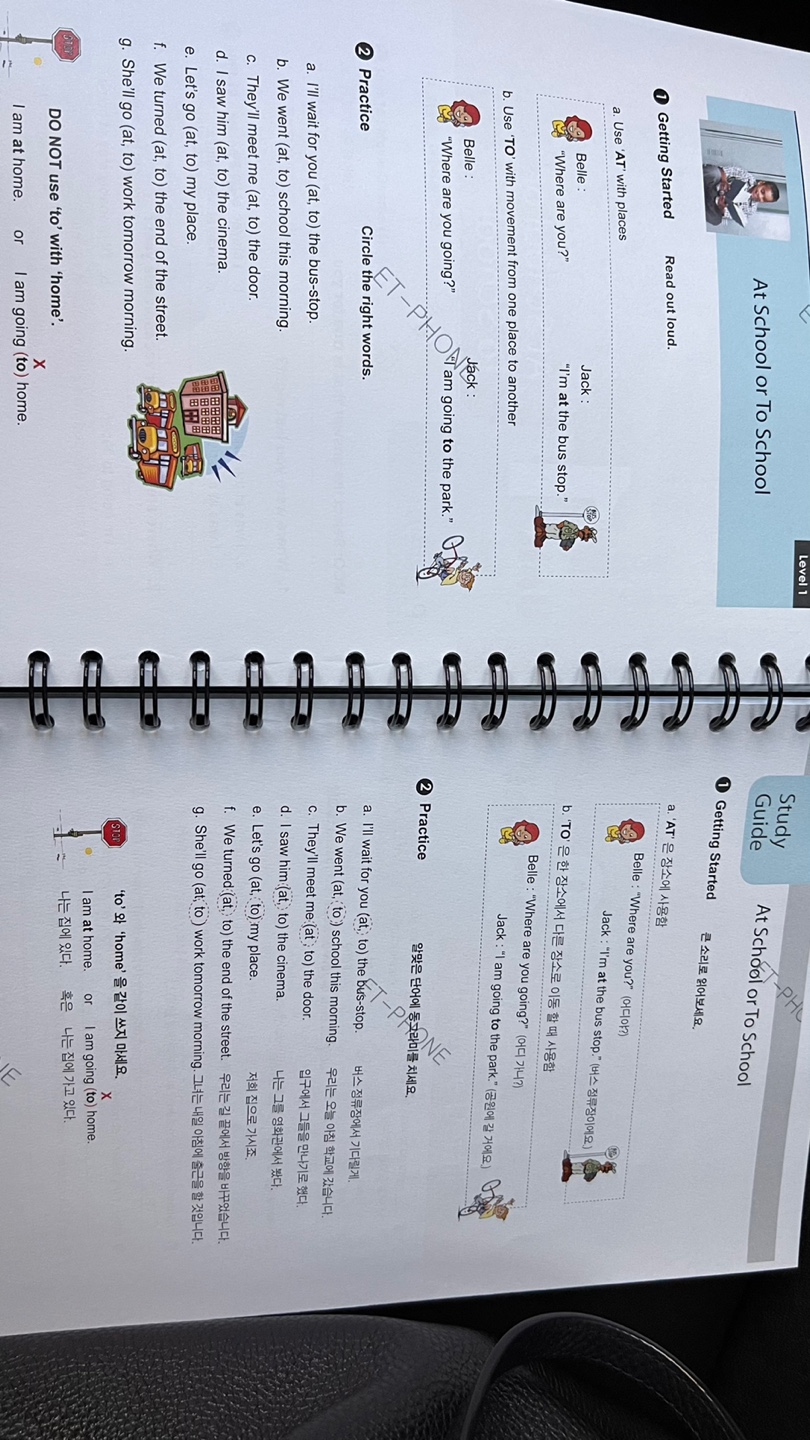 Level 1
At School or To School
❶ Getting Started Read out loud.
a. Use ‘AT’ with places
Belle : Jack :
“Where are you?” “I’m at the bus stop.”
BUS STOP
b. Use ‘TO’ with movement from one place to another
Belle : Jack :
“Where are you going?” “I am going to the park.”
❷ Practice Circle the right words.
a. I’ll wait for you (at, to) the bus-stop.
b. We went (at, to) school this morning.
c. They’ll meet me (at, to) the door.
d. I saw him (at, to) the cinema.
e. Let’s go (at, to) my place.
f. We turned (at, to) the end of the street.
g. She’ll go (at, to) work tomorrow morning.
STOP
DO NOT use ‘to’ with ‘home’.
X
I am at home. or I am going (to) home.
ET-PHONE
Study
Guide
At School or To School
❶ Getting Started 큰 소리로 읽어보세요.
a. ‘AT’ 은 장소에 사용함
Belle : “Where are you?” (어디야?)
Jack : “I’m at the bus stop.” (버스 정류장이에요.)
b. ‘TO’ 은 한 장소에서 다른 장소로 이동 할 때 사용함
Belle : “Where are you going?” (어디 가니?)
Jack : “I am going to the park.” (공원에 갈 거에요.)
❷ Practice 알맞은 단어에 동그라미를 치세요.
a. I’ll wait for you (at, to) the bus-stop. 버스 정류장에서 기다릴게.
b. We went (at, to) school this morning. 우리는 오늘 아침 학교에 갔습니다.
c. They’ll meet me (at, to) the door. 입구에서 그들을 만나기로 했다.
d. I saw him (at, to) the cinema. 나는 그를 영화관에서 봤다.
e. Let’s go (at, to) my place. 저희 집으로 가시죠.
f. We turned (at, to) the end of the street. 우리는 길 끝에서 방향을 바꾸었습니다.
g. She’ll go (at, to) work tomorrow morning. 그녀는 내일 아침에 출근을 할 것입니다.
STOP
‘to’ 와 ‘home’ 을 같이 쓰지 마세요.
X
I am at home. or I am going (to) home.
나는 집에 있다. 혹은 나는 집에 가고 있다.
ET-PHONE